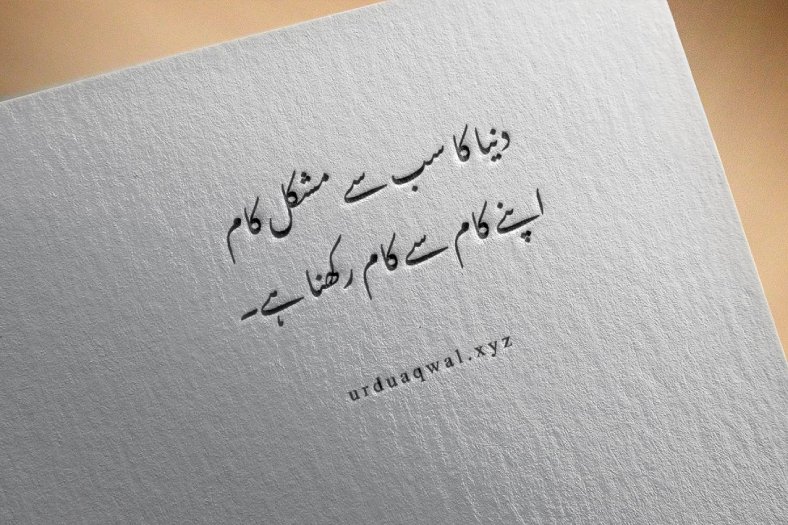 دنیا کا سب سے مشکل کام
اپنے کام سے کام رکھنا ہے۔
urduaqwal.xyz